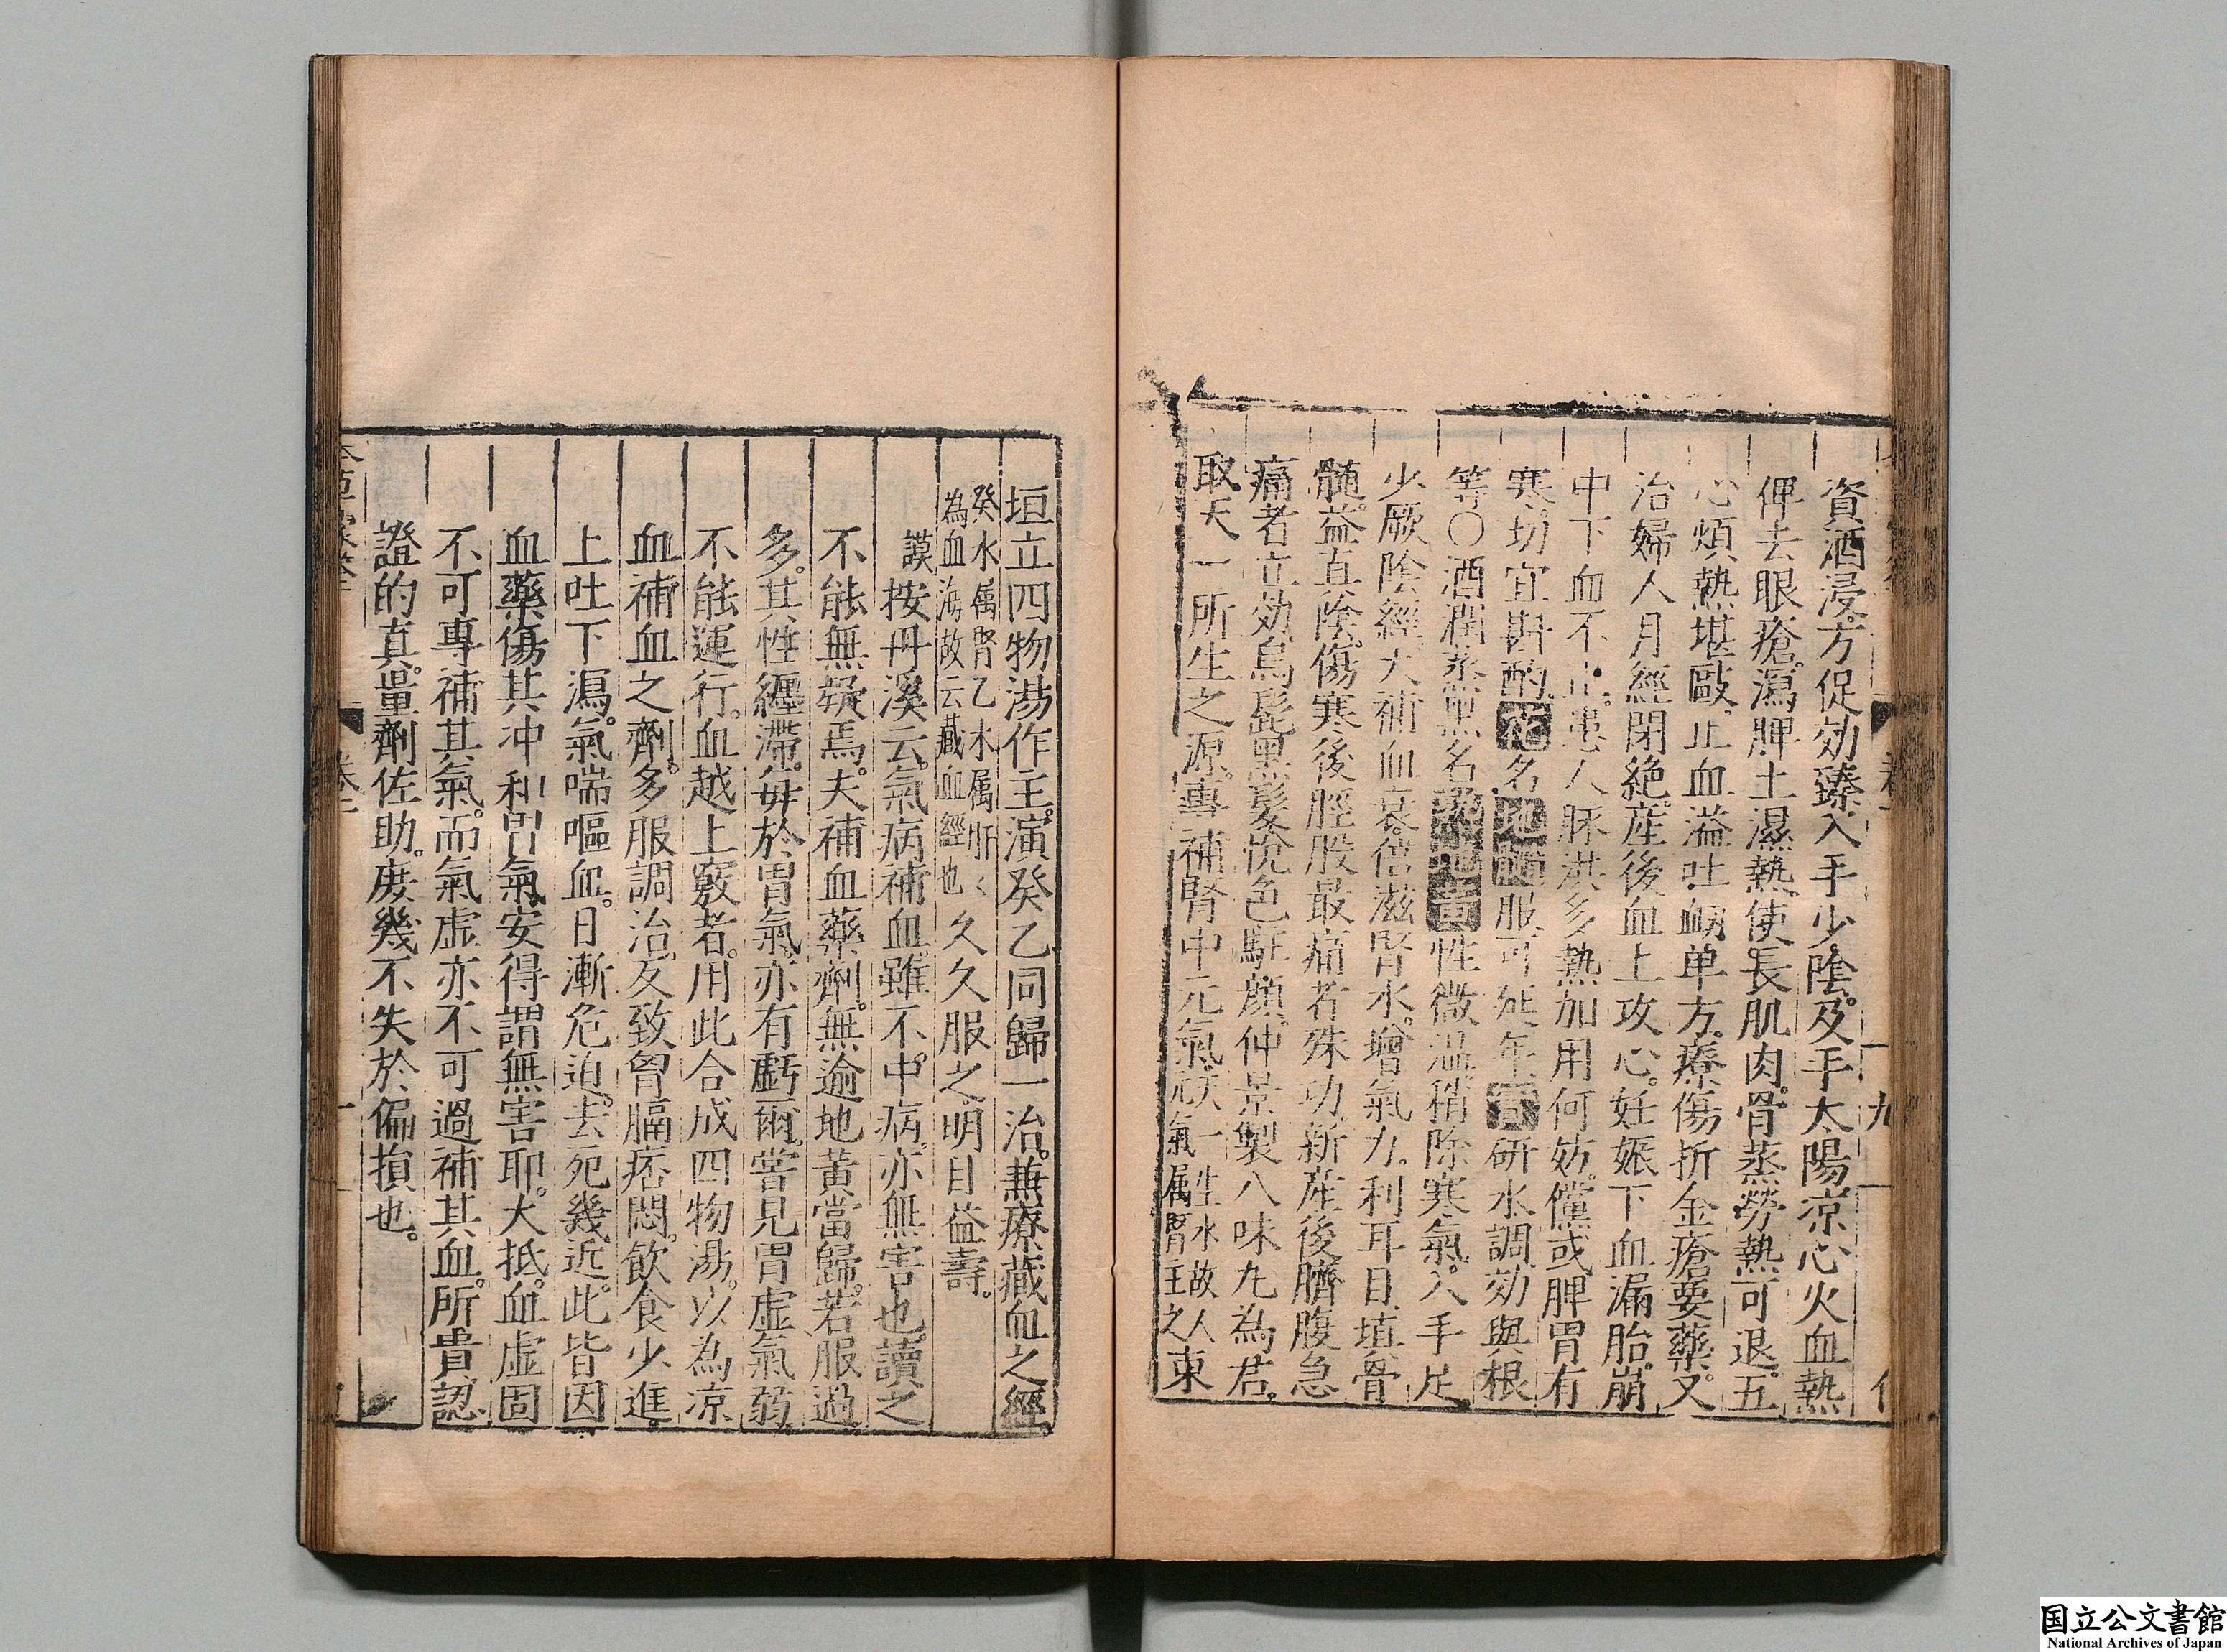 資酒浸。方促効臻。入手少陰。及手太陽。凉心火血熱
俾去眼瘡。瀉脾土濕熱。使長肌肉。骨蒸勞熱可退。五
心煩熱堪敺。止血溢吐衂。单方。療傷折金瘡要藥。又
治婦人月經閉絶。産後血上攻心。妊娠下血漏胎。崩
中下血不止。患人脉洪多熱。加用何妨。儻或脾胃有
寒。切宜斟酌。花名地髓。服可延年。實研水調。効與根
等〇酒潤蒸黑。名熟地黄。性微温。稍除寒氣。入手足
少厥陰經。大補血衰。倍滋腎水。增氣力。利耳目。填骨
髓。益真陰。傷寒後脛股最痛者殊功。新産後臍腹急
痛者立効。烏髭黑髮。悅色駐顏。仲景製八味丸為君。
取天一所生之源。專補腎中元氣。天一生水故人元氣属腎主之東
垣立四物湯作主。演癸乙同歸一治。兼療藏血之經。
癸水属腎乙木属肝〻為血海故云藏血經也久久服之。明目益壽。
謨按丹溪云。氣病補血。雖不中病。亦無害也。讀之
不能無疑焉。夫補血藥劑。無逾地黄當歸。若服過
多。其性纏滯。每於胃氣亦有虧爾。嘗見胃虛氣弱。
不能運行。血越上竅者。用此合成四物湯。以為凉
血補血之劑。多服調治。反致胷膈痞悶。飲食少進。
上吐下瀉。氣喘嘔血。日漸危迫。去死幾近。此皆因
血藥傷其冲和胃氣。安得謂無害耶。大抵。血虛固
不可專補其氣。而氣虛亦不可過補其血。所貴認
證的真。量劑佐助。庻幾不失於偏損也。
国立公文書館
National Archives of Japan